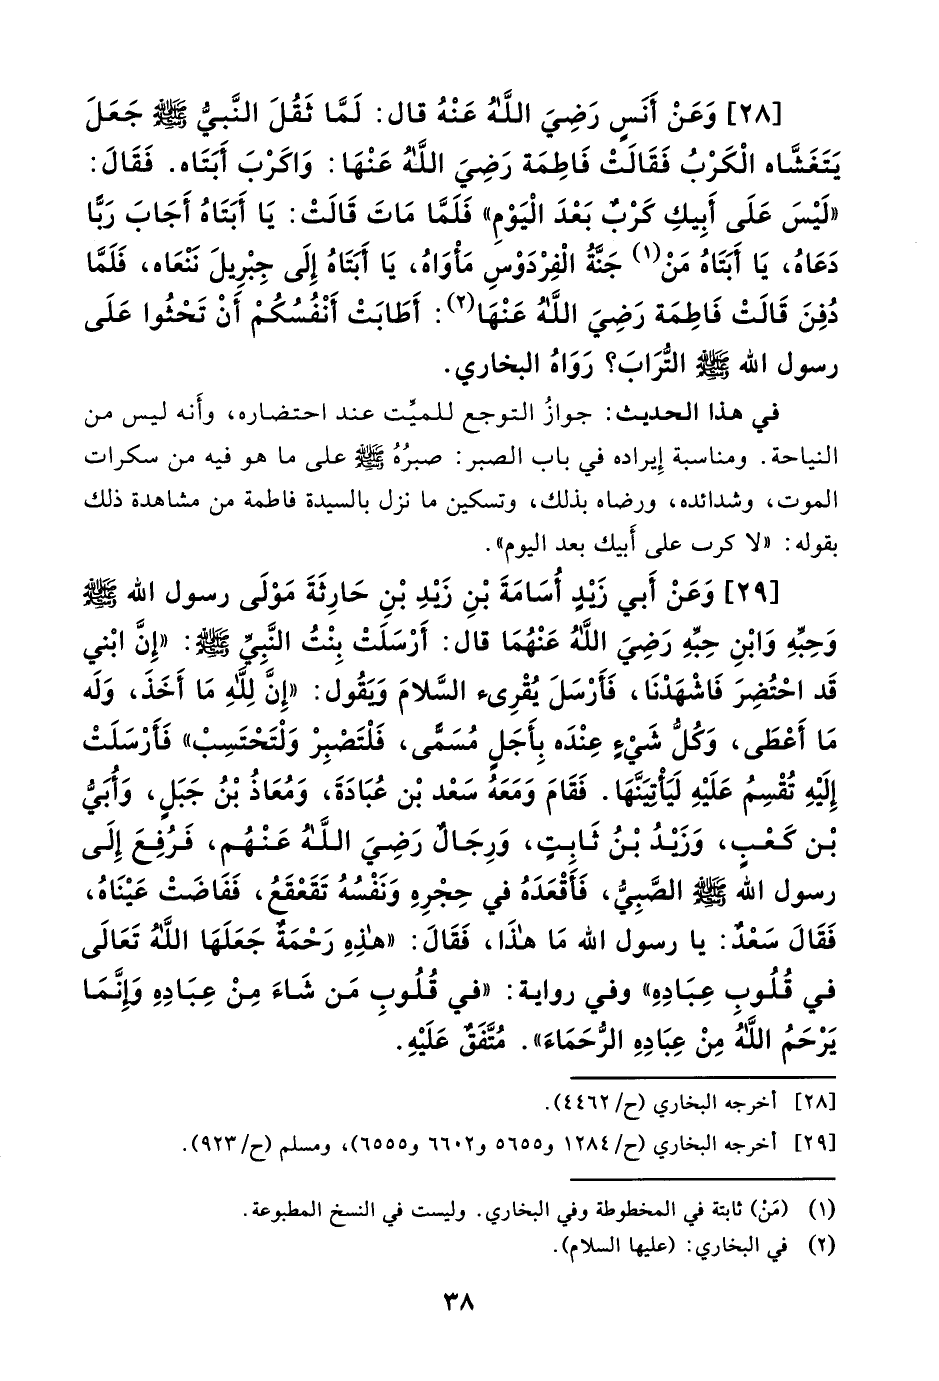 [٢٨] وَعَنْ أَنَسٍ رَضِيَ اللَّهُ عَنْهُ قال: لَمَّا ثَقُلَ النَّبيُّ ﷺ جَعَلَ
يَتَغَشَّاه الْكَرْبُ فَقَالَتْ فَاطِمَة رَضِيَ اللَّهُ عَنْهَا: وَاكَرْبَ أَبَتَاه. فَقَالَ:
«لَيْسَ عَلَى أَبِيكِ كَرْبٌ بَعْدَ الْيَوْمِ» فَلَمَّا مَاتَ قَالَتْ: يَا أَبَتَاهُ أَجَابَ رَبًّا
دَعَاهُ، يَا أَبَتَاهُ مَنْ(١) جَنَّةُ الْفِرْدَوْسِ مَأْوَاهُ، يَا أَبَتَاهُ إِلَى جِبْرِيلَ نَنْعَاه، فَلَمَّا
دُفِنَ قَالَتْ فَاطِمَة رَضِيَ اللَّهُ عَنْهَا(٢): أَطَابَتْ أَنْفُسُكُمْ أَنْ تَحْثُوا عَلَى
رسول الله ﷺ التُّرَابَ؟ رَوَاهُ البخاري.
في هذا الحديث: جوازُ التوجع للميِّت عند احتضاره، وأَنه ليس من
النياحة. ومناسبة إيراده في باب الصبر: صبرُهُ ﷺ على ما هو فيه من سكرات
الموت، وشدائده، ورضاه بذلك، وتسكين ما نزل بالسيدة فاطمة من مشاهدة ذلك
بقوله: «لا كرب على أَبيك بعد اليوم».
[٢٩] وَعَنْ أَبي زَيْدٍ أُسَامَةَ بْنِ زَيْدِ بْنِ حَارِثَةَ مَوْلَى رسول الله ﷺ
وَحِبِّهِ وَابْنِ حِبِّهِ رَضِيَ اللَّهُ عَنْهُمَا قال: أَرْسَلَتْ بِنْتُ النَّبِيِّ ﷺ: «إِنَّ ابْني
قَد احْتُضِرَ فَاشْهَدْنَا، فَأَرْسَلَ يُقْرِىء السَّلامَ وَيَقُول: «إِنَّ لِلَّهِ مَا أَخَذَ، وَلَه
مَا أَعْطَى، وَكُلُّ شَيْءٍ عِنْدَه بِأَجَلٍ مُسَمًّى، فَلْتَصْبِرْ وَلْتَحْتَسِبْ» فَأَرْسَلَتْ
إِلَيْهِ تُقْسِمُ عَلَيْهِ لَيَأْتِيَنَّهَا. فَقَامَ وَمَعَهُ سَعْد بْن عُبَادَةَ، وَمُعَاذُ بْنُ جَبَلٍ، وَأُبَيُّ
بْن كَعْبٍ، وَزَيْدُ بْنُ ثَابِتٍ، وَرِجَالٌ رَضِيَ اللَّهُ عَنْهُم، فَرُفِعَ إِلَى
رسول الله ﷺ الصَّبِيُّ، فَأَقْعَدَهُ في حِجْرِهِ وَنَفْسُهُ تَقَعْقَعُ، فَفَاضَتْ عَيْنَاهُ،
فَقَالَ سَعْدٌ: يا رسول الله مَا هٰذَا، فَقَالَ: «هٰذِهِ رَحْمَةٌ جَعَلَهَا اللَّهُ تَعَالَى
في قُلُوبِ عِبَادِهِ» وفي رواية: «في قُلُوبِ مَن شَاءَ مِنْ عِبَادِهِ وَإِنَّمَا
يَرْحَمُ اللَّهُ مِنْ عِبَادِهِ الرُّحَمَاءَ». مُتَّفَقٌ عَلَيْهِ.
[٢٨] أخرجه البخاري (ح/٤٤٦٢).
[٢٩] أخرجه البخاري (ح/١٢٨٤ و٥٦٥٥ و٦٦٠٢ و٦٥٥٥)، ومسلم (ح/٩٢٣).
(١) (مَنْ) ثابتة في المخطوطة وفي البخاري. وليست في النسخ المطبوعة.
(٢) في البخاري: (عليها السلام).
٣٨